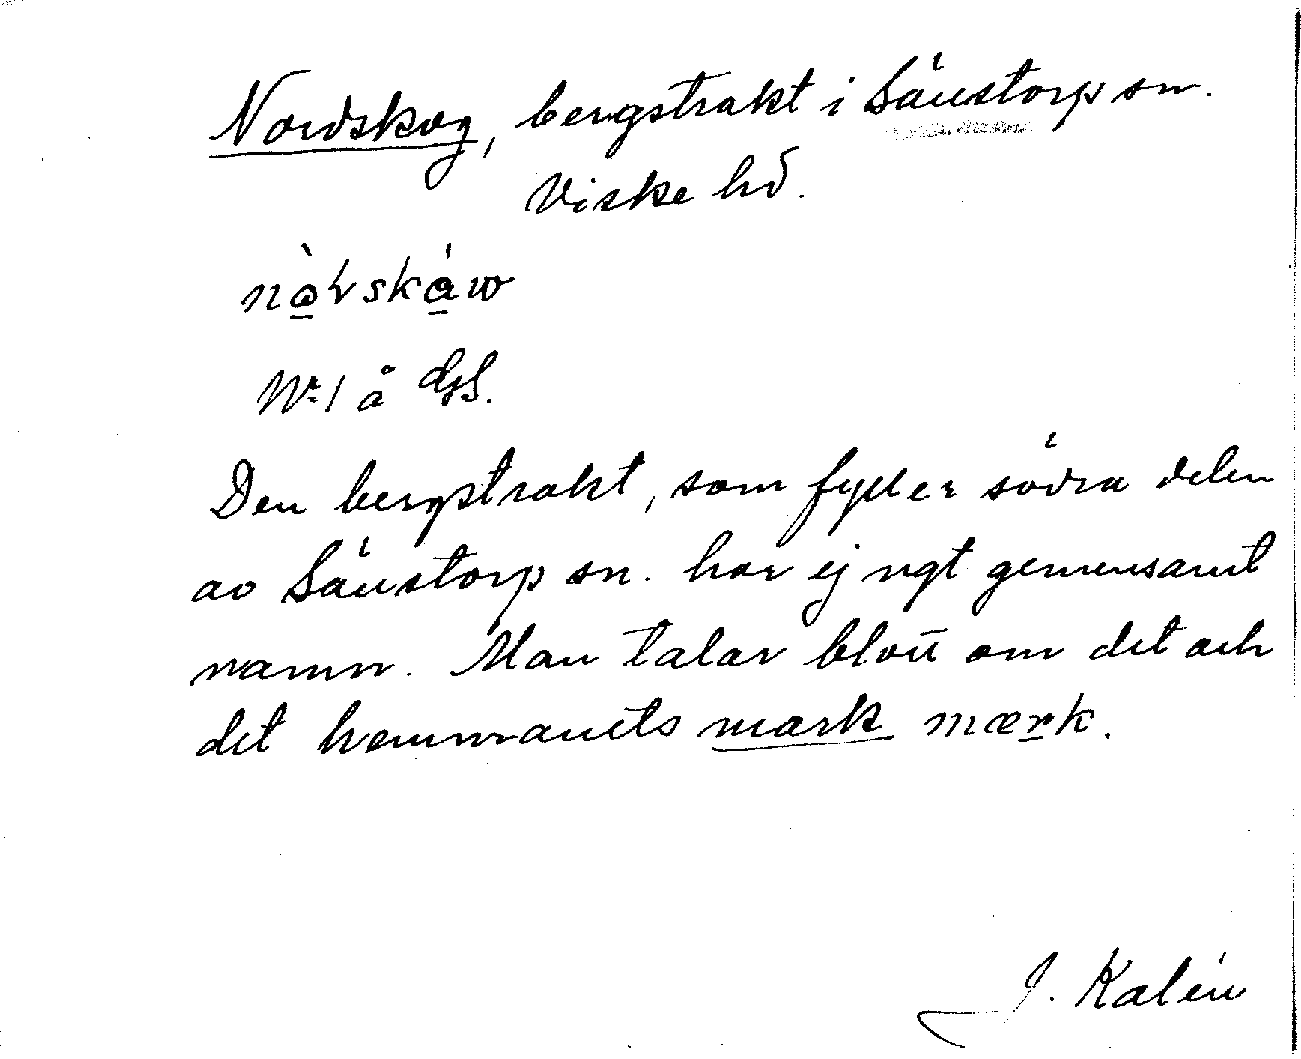 Nordskog, bergstrakt i Säustorp sn.
Viske hd.
nàrskáw
Nr 1 å GS.
Den bergstrakt, som fyller södra delen
av Säustorp sn. har ej ngt gemensamt
namn. Man talar blott om det och
det hemmanets mark mærk.
J. Kalén